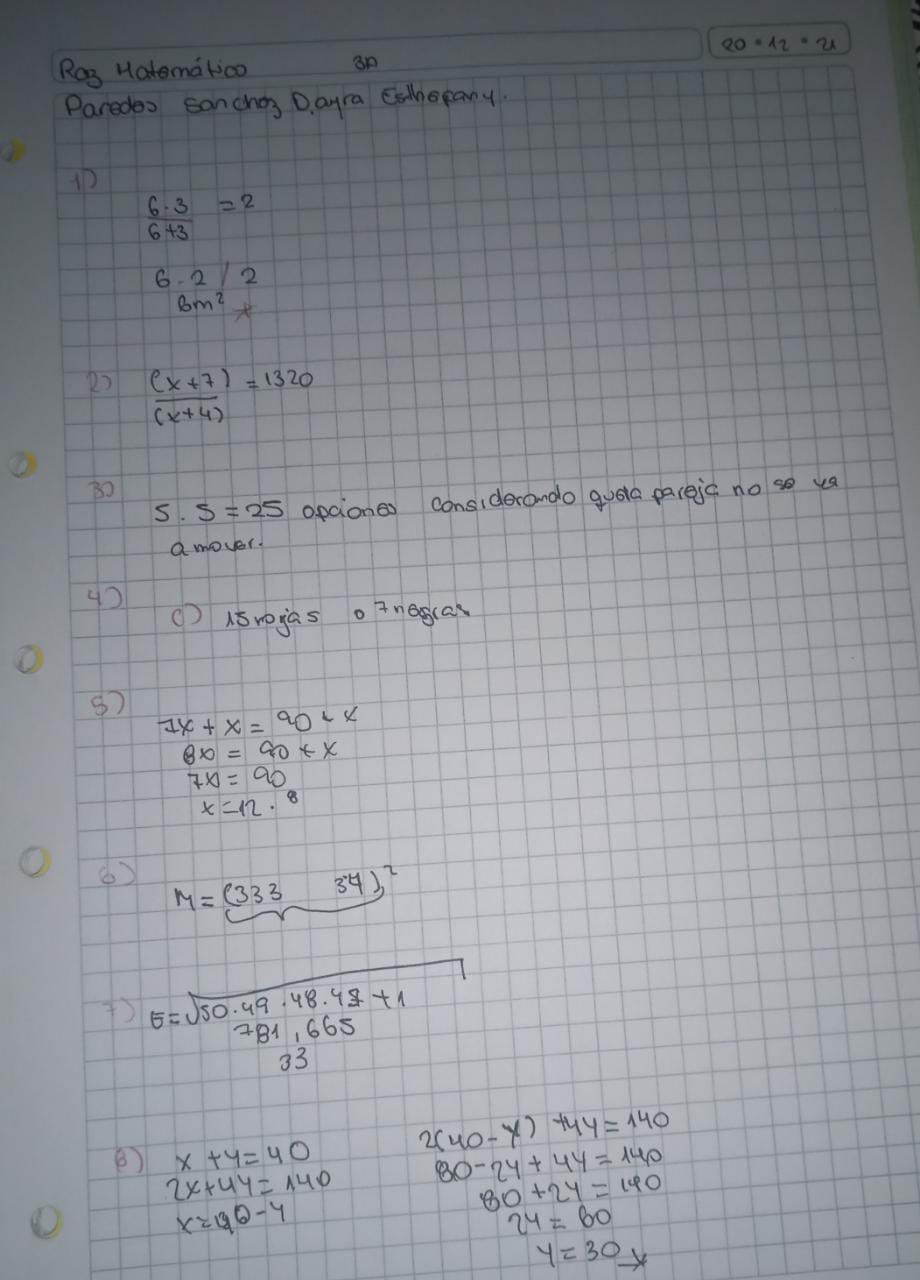 20・12・21
Raz Matemático 3A
Paredes Sanchez Dayra Esthepany.
1)
6・3 = 2
6+3
6・2 / 2
8m²
2) (x+7) = 1320
(x+4)
3)
5.5=25 opciones considerando que la pareja no se va
a mover.
4)
C) 15 rojas o 7 negras
5)
7x + x = 90 + x
8x = 90 + x
7x = 90
x=12.8
6)
M = (333 34)²
7) E=√50.49.48.47 + 1
781,665
33
8) x + y = 40
2x+4y = 140
x=40-y
2(40-y) + 4y = 140
80-2y + 4y = 140
80 + 2y = 140
2y = 60
y = 30